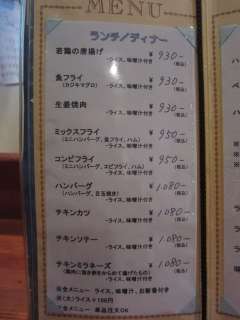 MENU
ランチ/ディナー
若鶏の唐揚げ ¥ 930-
-ライス、味噌汁付き (税込)
魚フライ ¥ 930-
(カジキマグロ) -ライス、味噌汁付き (税込)
生姜焼肉 ¥ 930-
-ライス、味噌汁付き (税込)
ミックスフライ ¥ 950-
(ミニハンバーグ、魚フライ、ハム) (税込)
-ライス、味噌汁付き
コンビフライ ¥ 950-
(ミニハンバーグ、エビフライ、ハム) (税込)
-ライス、味噌汁付き
ハンバーグ ¥ 1080-
(ハンバーグ、目玉焼き) (税込)
-ライス、味噌汁付き
チキンカツ ¥ 1,080-
-ライス、味噌汁付き (税込)
チキンソテー ¥ 1,080-
-ライス、味噌汁付き (税込)
チキンミラネーズ ¥ 1,080-
(鶏肉に溶き卵をからめて揚げたもの) (税込)
-ライス、味噌汁付き
※全メニュー ライス、味噌汁、お新香付き
※(大)ライス+100円
※全メニュー 単品注文OK